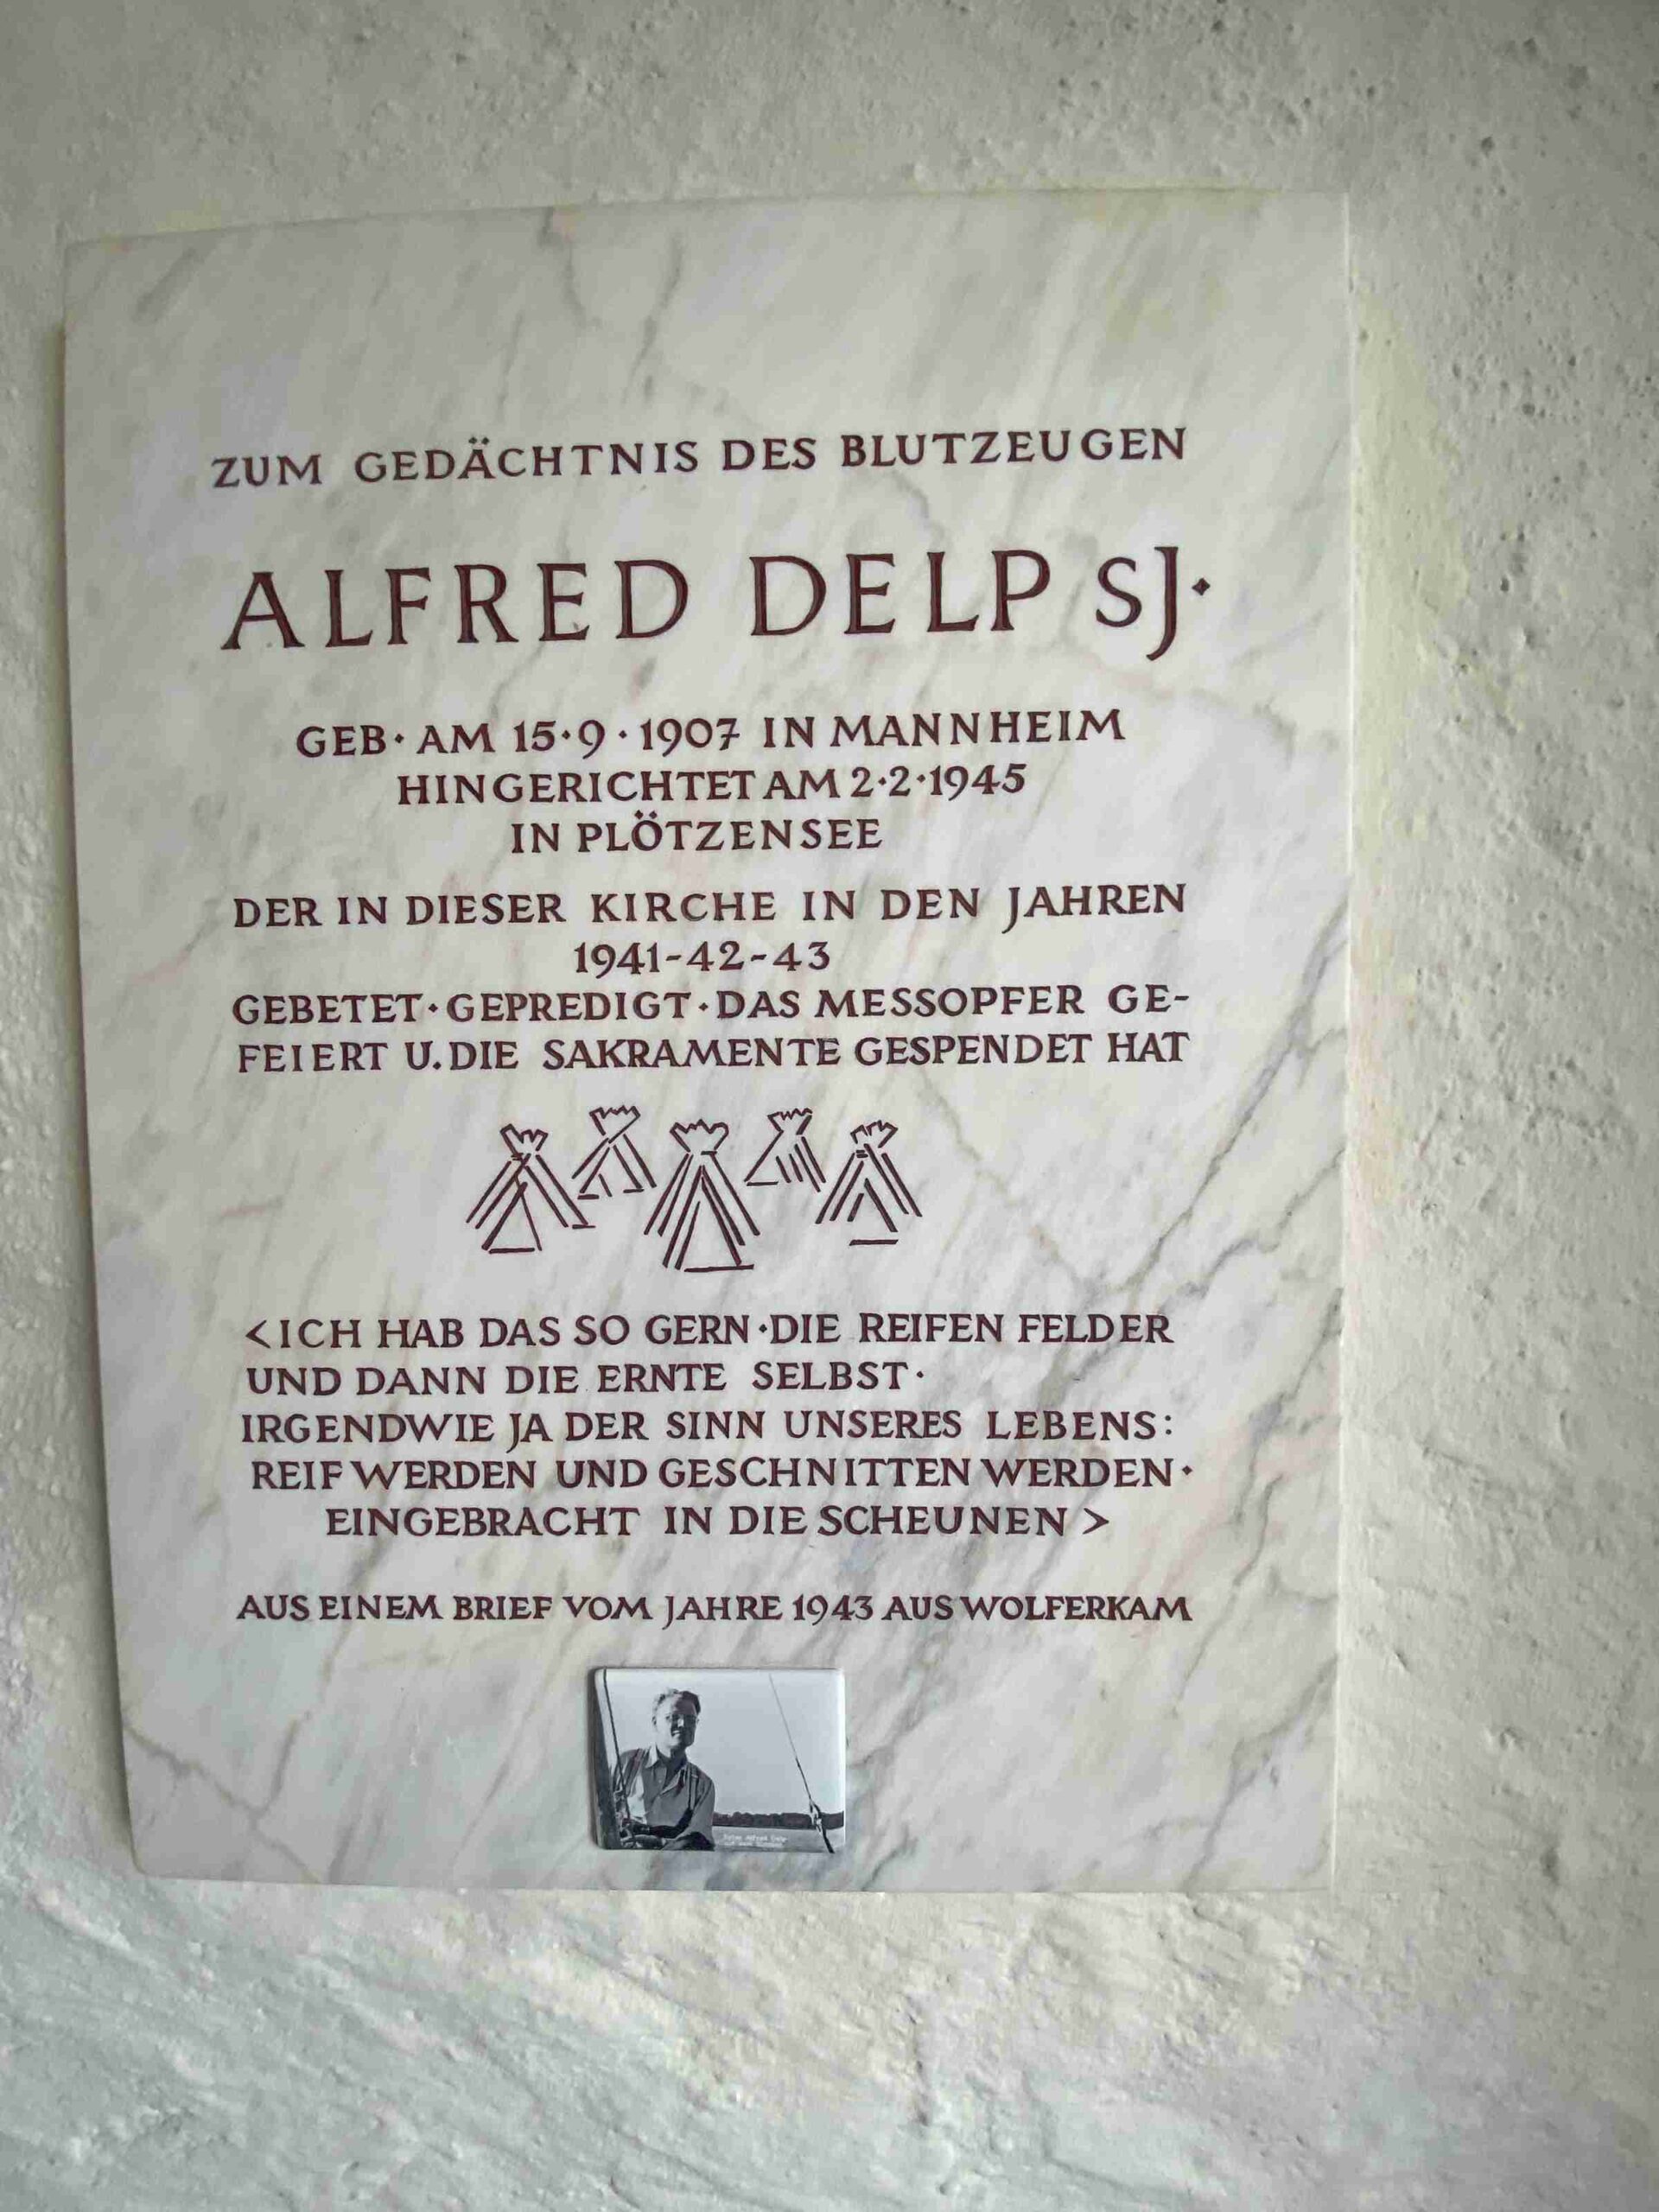 ZUM GEDÄCHTNIS DES BLUTZEUGEN
ALFRED DELP SJ·
GEB· AM 15·9·1907 IN MANNHEIM
HINGERICHTET AM 2·2·1945
IN PLÖTZENSEE
DER IN DIESER KIRCHE IN DEN JAHREN
1941-42-43
GEBETET·GEPREDIGT·DAS MESSOPFER GE-
FEIERT U. DIE SAKRAMENTE GESPENDET HAT
<ICH HAB DAS SO GERN·DIE REIFEN FELDER
UND DANN DIE ERNTE SELBST·
IRGENDWIE JA DER SINN UNSERES LEBENS:
REIF WERDEN UND GESCHNITTEN WERDEN·
EINGEBRACHT IN DIE SCHEUNEN>
AUS EINEM BRIEF VOM JAHRE 1943 AUS WOLFERKAM
Pater Alfred Delp